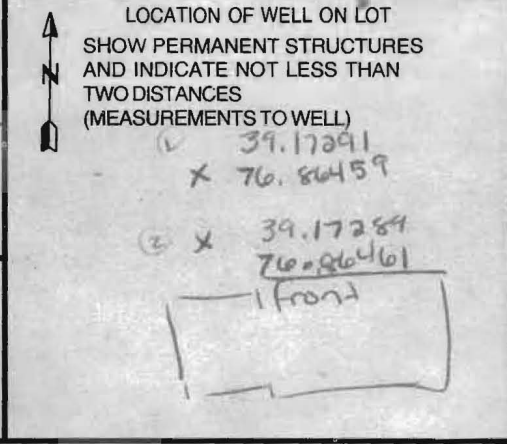 LOCATION OF WELL ON LOT
SHOW PERMANENT STRUCTURES
N AND INDICATE NOT LESS THAN
TWO DISTANCES
(MEASUREMENTS TO WELL)
① 39.17291
X 76.86459
② X 39.17284
76.86461
front